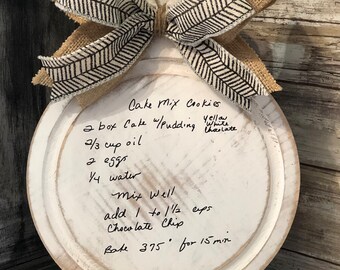 Cake Mix Cookies
2 box Cake w/Pudding Yellow
White
Chocolate
2/3 cup oil
2 eggs
1/4 water
Mix Well
add 1 to 1 1/2 cups
Chocolate Chip
Bake 375° for 15 min